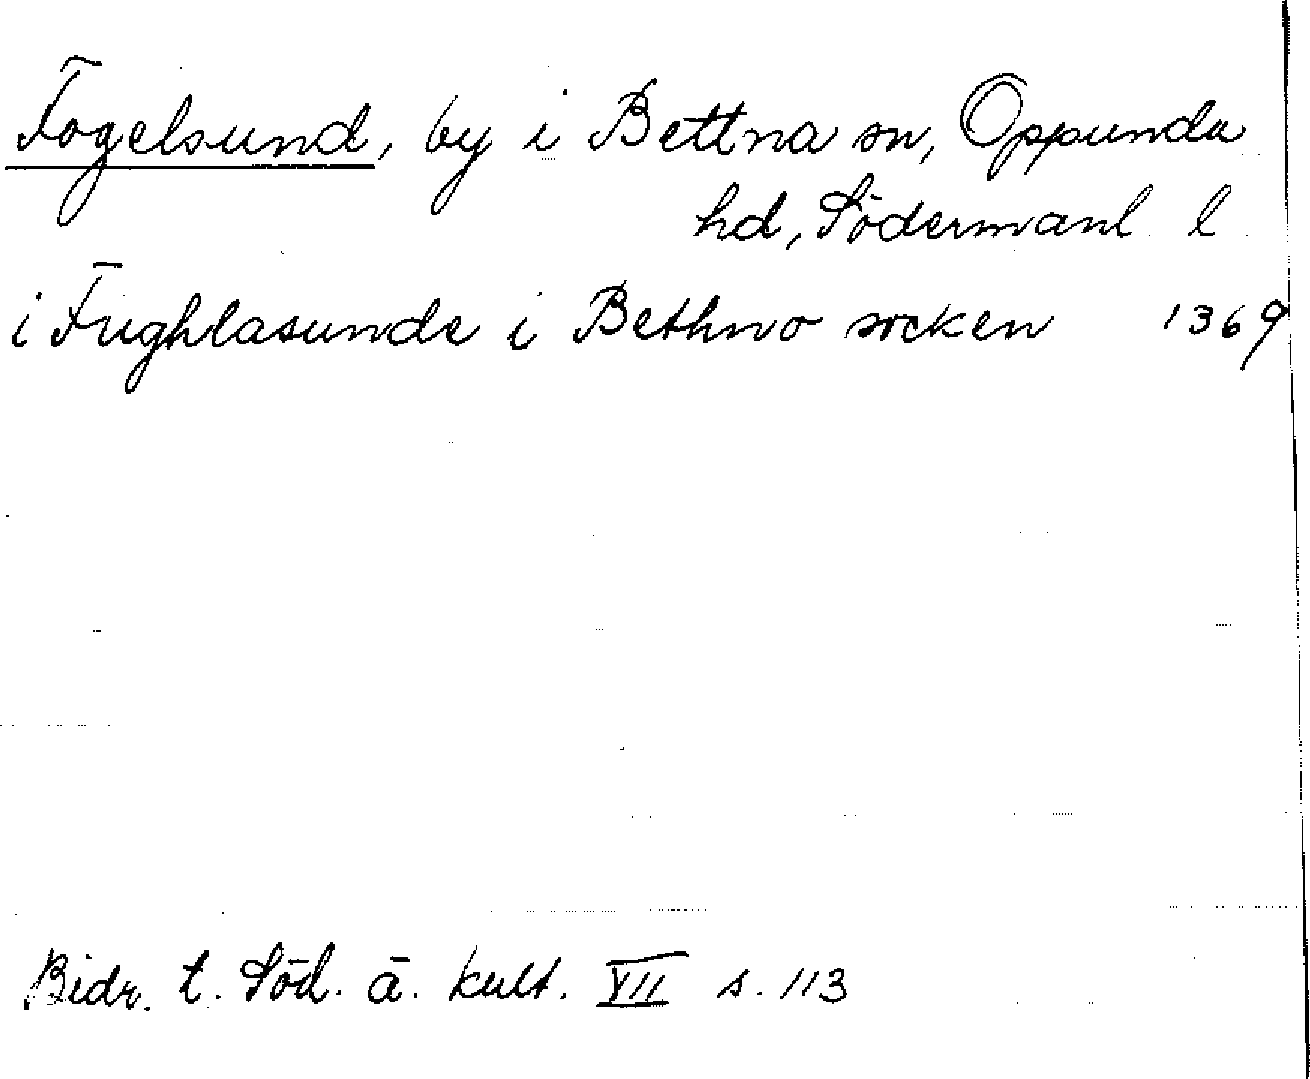 Fogelsund, by i Bettna sn, Oppunda
hd, Södermanl l
i Fughlasunde i Bethno socken 1369
Bidr. t. Söd. ä. kult. VII s. 113